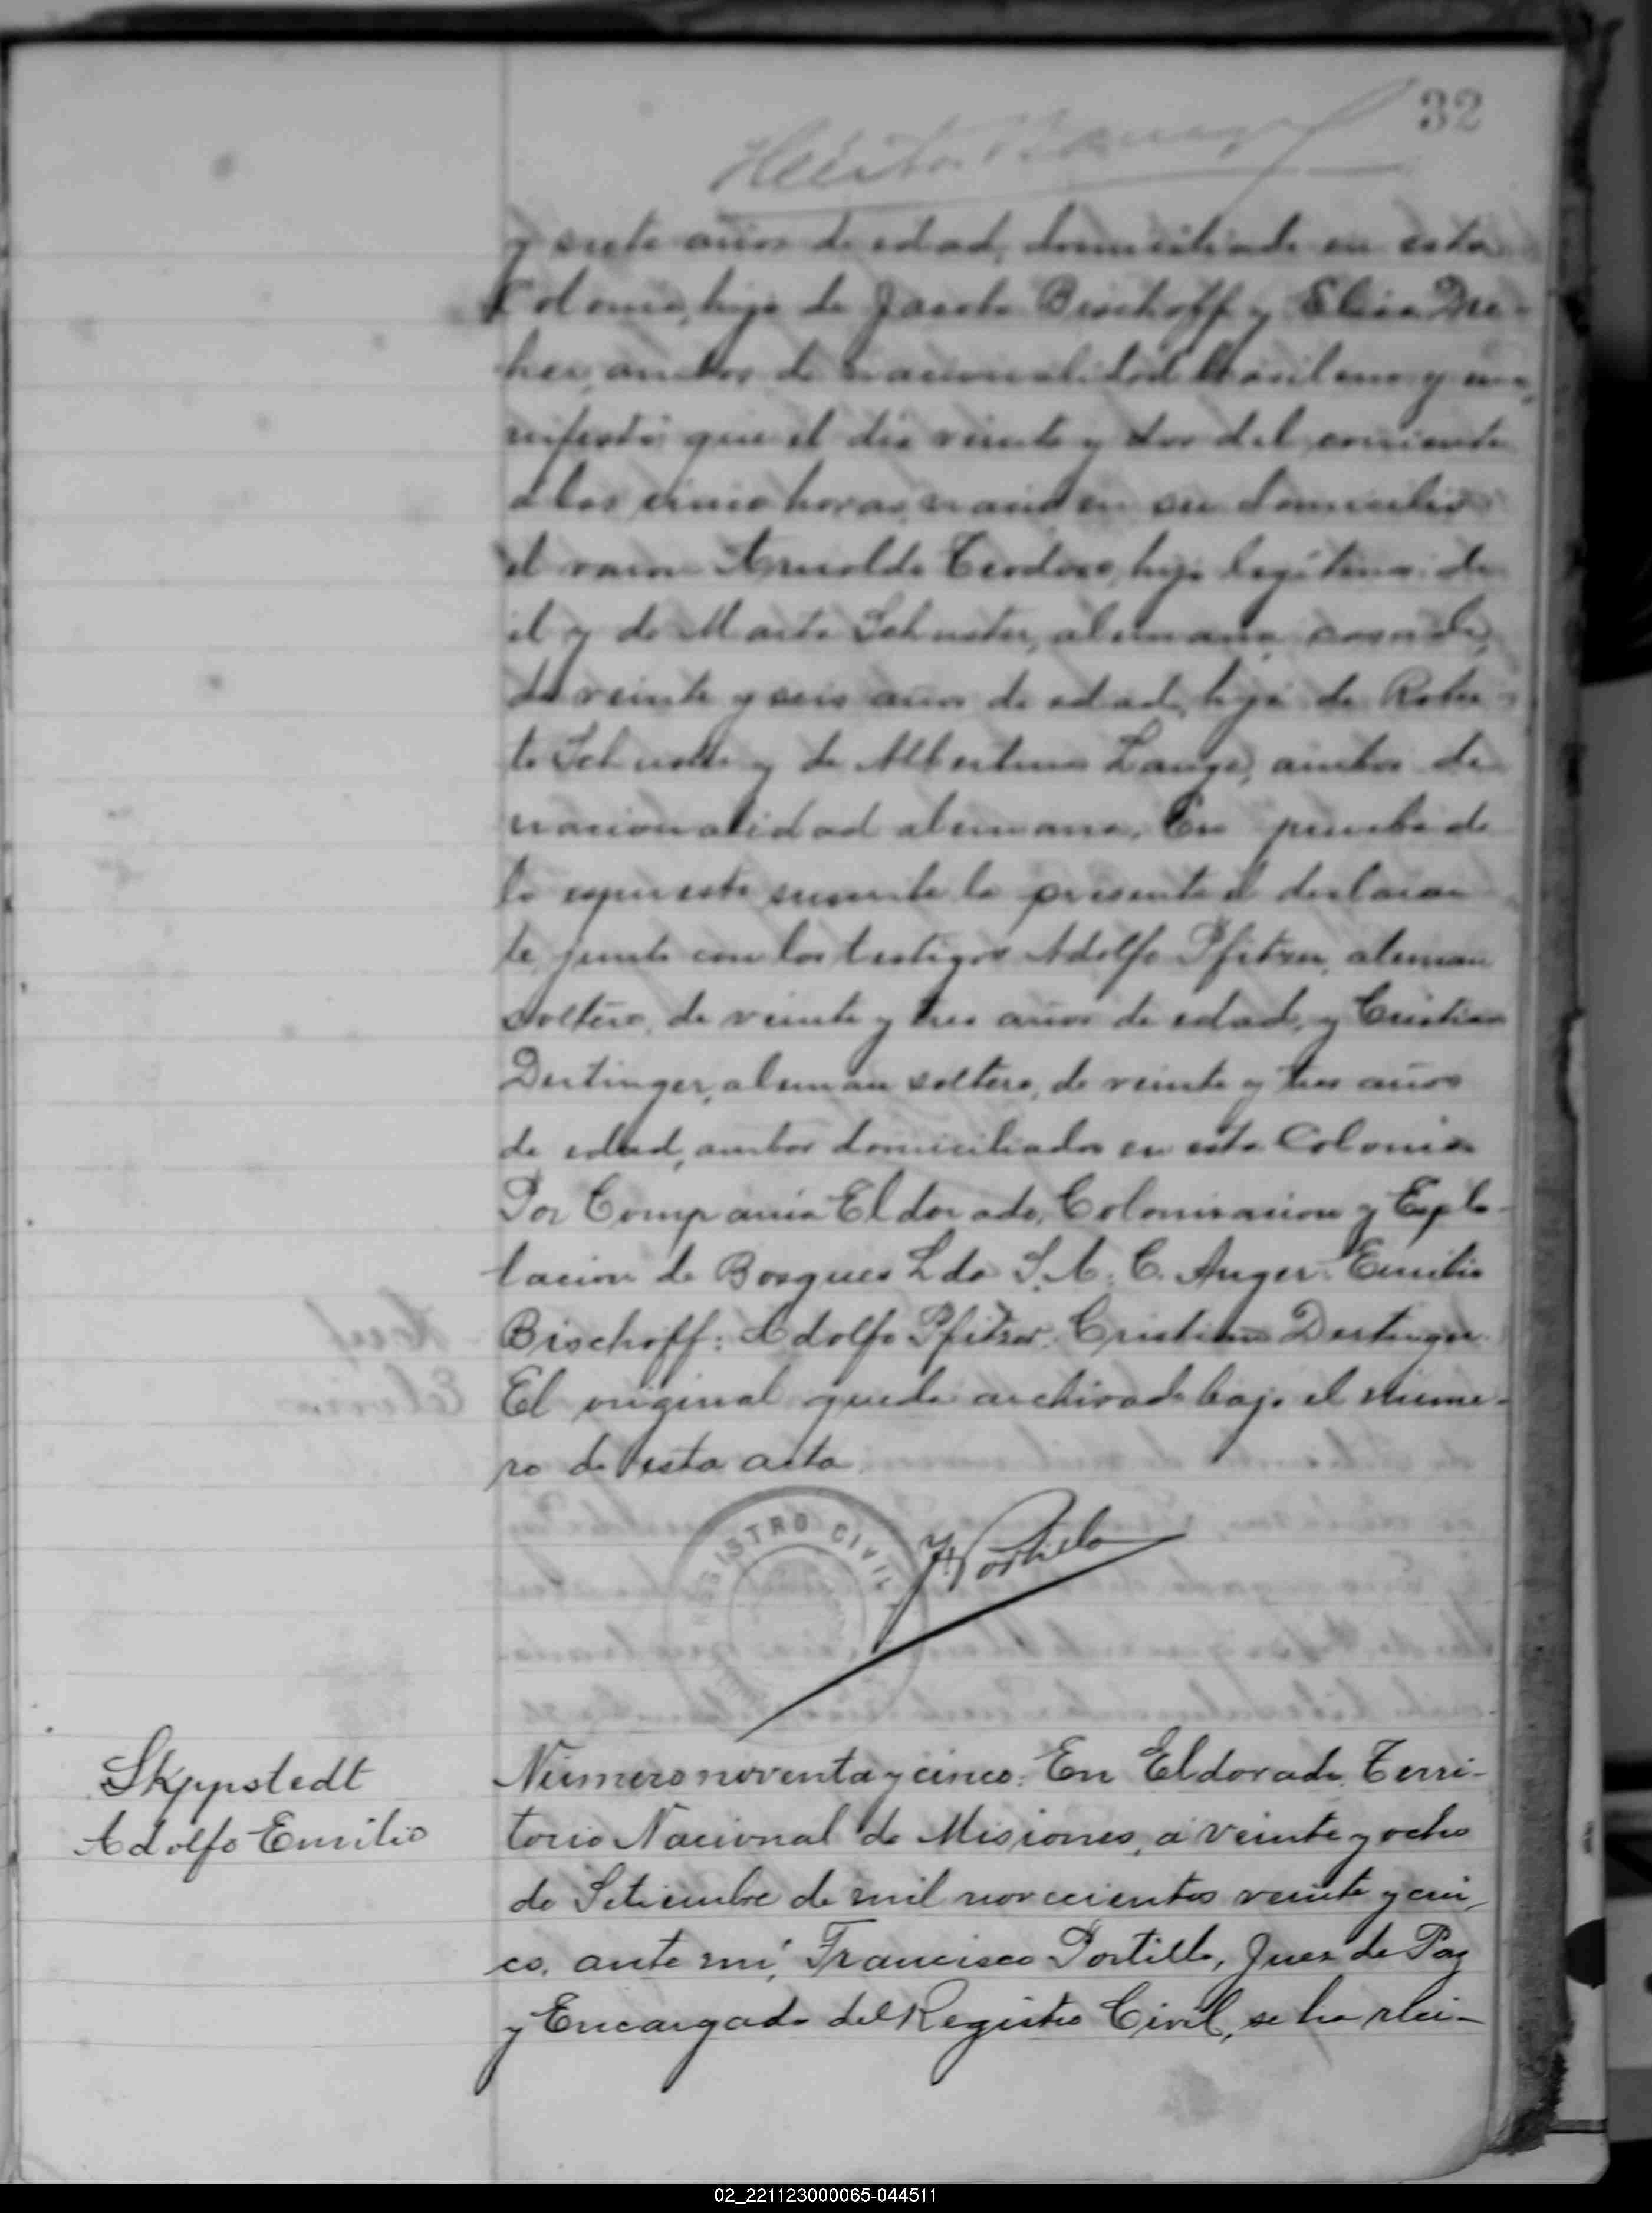 32
y siete años de edad, domiciliado en esta
Colonia, hijo de Jacobo Bischoff y Elisa Dre-
her, ambos de nacionalidad brasilena y ma-
nifestó: que el dia veinte y dos del corriente
a las cinco horas, nació en su domicilio
el varon Arnoldo Teodoro, hijo legítimo de
él y de Marta Schuster, alemana, casada,
de veinte y seis años de edad, hija de Rober-
to Schuster y de Albertina Lange, ambos de
nacionalidad alemana. En prueba de
lo espuesto suscribe la presente el declaran
te junto con los testigos Adolfo Pfitzer, aleman
soltero, de veinte y tres años de edad, y Cristian
Dertinger, aleman soltero, de veinte y tres años
de edad, ambos domiciliados en esta Colonia
Por Compania Eldorado, Colonisacion y Esplo-
tacion de Bosques Lda S. A: C. Auger: Emilio
Bischoff: Adolfo Pfitzer: Cristian Dertinger.
El original queda archivado bajo el núme-
ro de esta acta.
REGISTRO CIVIL
F Portillo
Skppstedt
Adolfo Emilio
Número noventa y cinco: En Eldorado, Terri-
torio Nacional de Misiones, a veinte y ocho
de Setiembre de mil novecientos veinte y cin-
co, ante mí, Francisco Portillo, Juez de Paz
y Encargado del Registro Civil, se ha
02_221123000065-044511